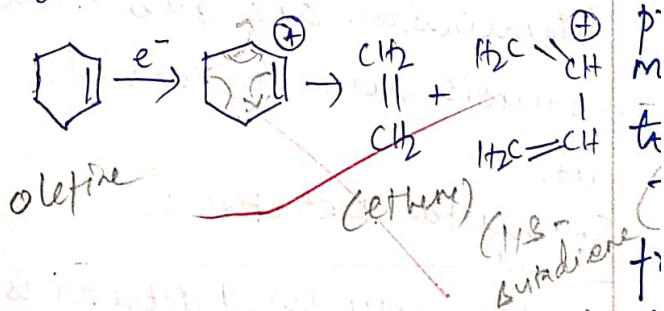 e⁻
CH₂ || CH₂ + H₂C = CH | H₂C=CH ⊕
olefine
(ethene)
(1,3-
Butadiene